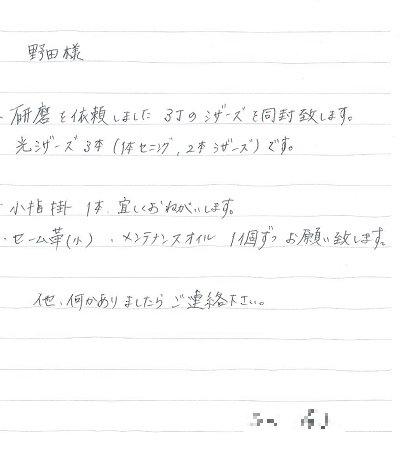 野田様
・研磨を依頼しました 3丁のシザーズを同封致します。
光シザーズ 3本 (1本セニング, 2本シザーズ)です。
・小指掛 1本、宜しくおねがいします。
・セーム革(小)、メンテナンスオイル 1個ずつ お願い致します。
他、何かありましたら ご連絡下さい。